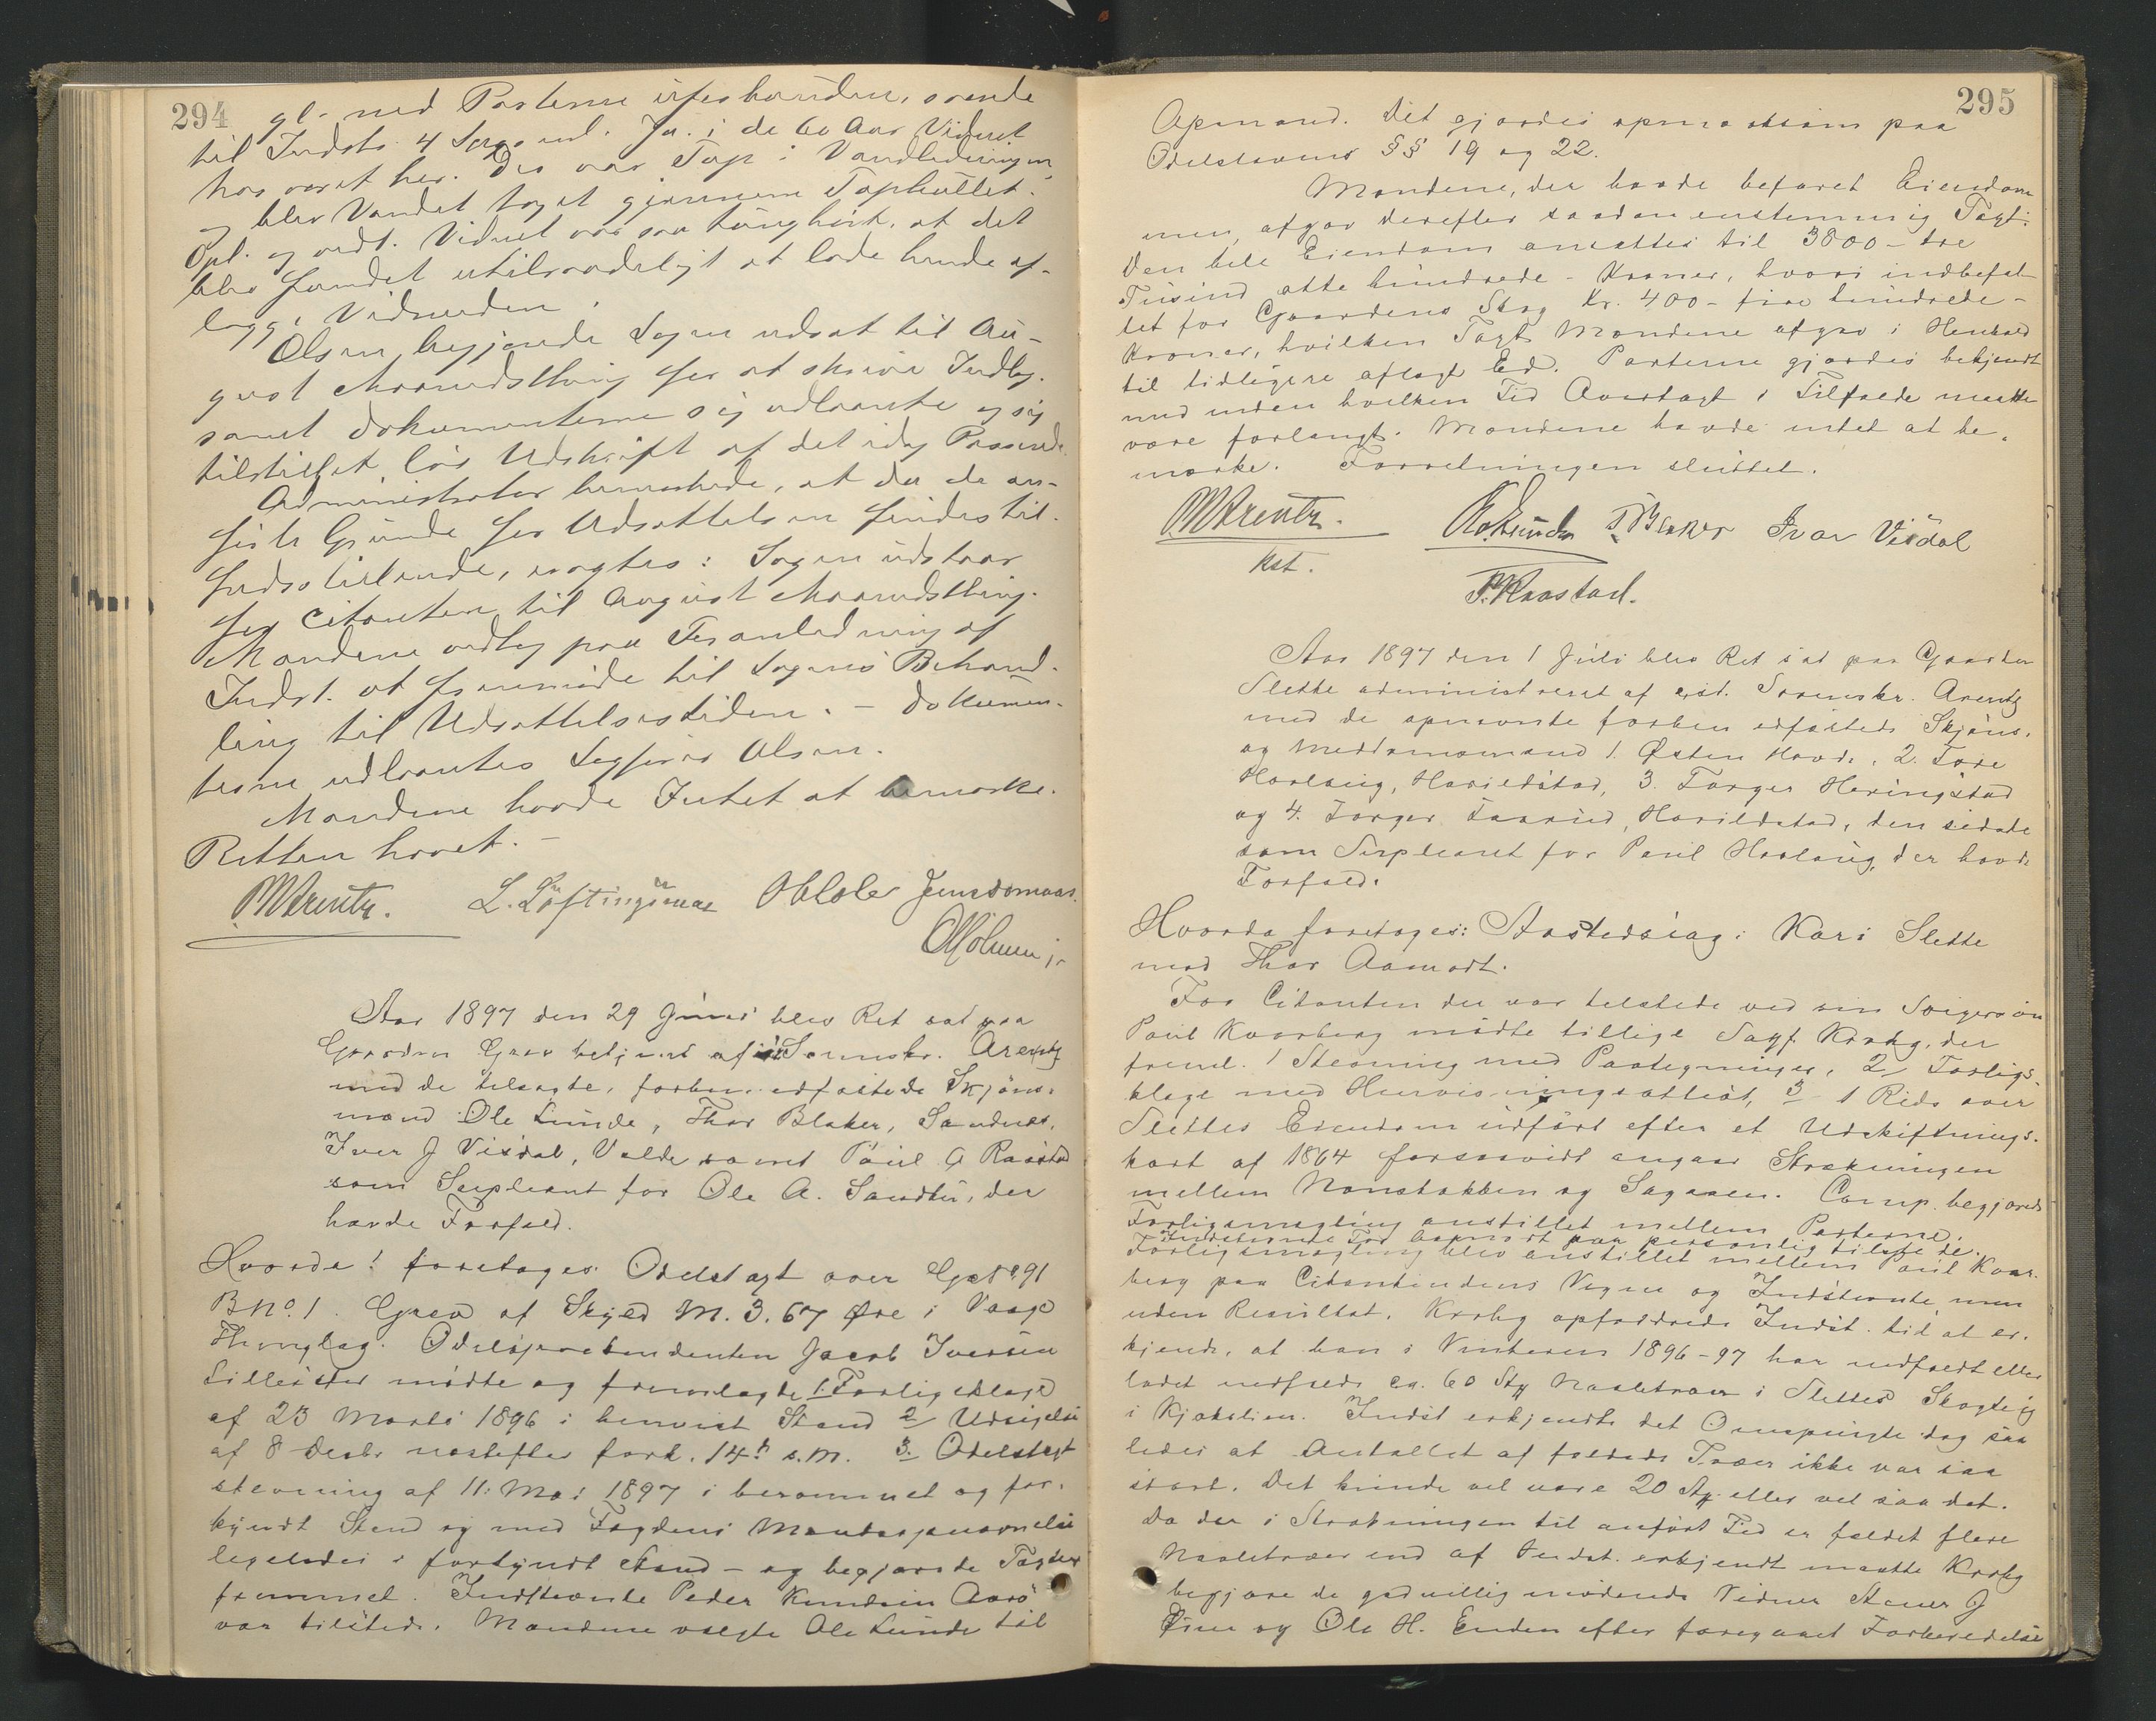 294
gl. med Parterne uforbunden, svarede
til Indsts. 4 Spsml. Ja. i de 60 Aar Vidnet
har været her. Der var Tap i Vandledningen
og blev Vandet taget gjennem Taphullet.
Opl. og vedt. Vidnet var saa tunghørt, at det
blev fundet utilraadeligt at lade hende af-
lægge Vidneeden.
Olsen begjærede Sagen udsat til Au-
gust Maanedsthing for at skrive Indlæg.
samt dokumenterne sig udlaante og sig
tilstillet løs Udskrift af det idag Passerede.
Administrator bemærkede, at da de an-
førte Grunde for Udsættelsen findes til-
fredsstillende, vragtes: Sagen udstaar
for Citanten til August Maanedsthing.
Mændene vedtog paa Foranledning af
Indst. at fremmøde til Sagens Behand-
ling til Udsættelsestiden. - Dokumen-
terne udlaantes Sagfører Olsen.
Mændene havde Intet at bemærke.
Retten hævet. -
MArentz. L. Løftingsmo OHole Jens
OHolmen jr.
Aar 1897 den 29 Juni blev Ret sat paa
Gaarden Græv betjent af Sorenskr. Arentz
med de tilsagte, forhen edfæstede Skjøns-
mænd Ole Lunde, Thor Blaker, Sandnes,
Iver J Visdal, Valde samt Paul A Raastad
som Supleant for Ole A. Sandbu, der
havde Forfald.
Hvorda! foretoges: Odelstagt over G.No 91
BNo. 1. Græv af Skyld M. 3. 67 Øre i Vaage
Thinglag. Odelsprætendenten Jacob Iversen
mødte og fremlagte 1. Forligsklage
af 23 Marts 1896 i henvist Stand 2/ Udsigelse
af 8 Decbr næstefter fork. 14de s.M. 3. Odelstagt
stevning af 11. Mai 1897 i berammet og for-
kyndt Stand og med Fogdens Mandsopnævnelse
ligeledes i forkyndt Stand - og begjærede Tagten
fremmet. Indstevnte Peder Knudsen
var tilstede. Mændene valgte Ole Lunde til
295
Opmand. Det gjordes opmærksom paa
Odelslovens §§ 19 og 22.
Mændene, der havde befaret Eiendom
men, afgav derefter saadan enstemmig Tagt:
Den hele Eiendom ansættes til 3800 - tre
Tusind otte hundrede - Kroner, hvori indbefat
tet for Gaardens Skog Kr. 400 - fire hundrede -
Kroner, hvilken Tagt Mændene afgav i Henhold
til tidligere aflagt Ed. Parterne gjordes bekjendt
med inden hvilken Tid Overtagt i Tilfælde maatte
være forlangt. Mændene havde intet at be-
mærke. Forretningen sluttet.
MArentz. O.Lunde T Blaker Ivar Visdal
kst.
P. Raastad.
Aar 1897 den 1 Juli blev Ret sat paa Gaarden
Slette administreret af cst. Sorenskr. Arentz
med de opnævnte forhen edfæstede Skjøns-
og Meddomsmænd 1. Østen Hovde, 2. Tore
Haalaug, Harildstad, 3. Torger Heringstad
og 4. Torger Taarud, Harildstad, den sidste
som Supleant for Paul Haalaug, der havde
Forfald.
Hvorda foretoges: Aastedssag: Kari Slette
mod Thor Aamodt.
For Citanten der var tilstede ved sin Svigersøn
Paul Kvarberg mødte tillige Sagf. Krohg, der
freml. 1 Stevning med Paategninger, 2/ Forligs-
klage med Henvisningsattest, 3 1 Rids over
Slettes Eiendom udført efter et Udskiftnings-
kart af 1864 forsaavidt angaar Strækningen
mellem Nonstabben og Sagaaen. Comp. begjærede
Forligsmægling anstillet mellem Parterne.
Indstevnte Tor Aamodt var personlig tilstede.
Forligsmægling blev anstillet mellem Paul Kvar-
berg paa Citantindens Vegne og Indstevnte, men
uden Resultat. Krohg opfordrede Indst. til at er-
kjende, at han i Vinteren 1896-97 har nedfældt eller
ladet nedfælde ca. 60 Stk Naaletræer i Slettes Skogteig
i Kjøkelien. Indst erkjendte det Omspurgte dog saa
ledes at Antallet af fældede Træer ikke var saa
stort. Det kunde vel være 20 Stk. eller vel saa det.
Da der i Strækningen til anført Tid er fældet flere
Naaletræer end af Indst. erkjendt maatte Krohg
begjære de godvillig mødende Vidner Stener J
Øien og Ole H. Enden efter foregaaet Forberedelse